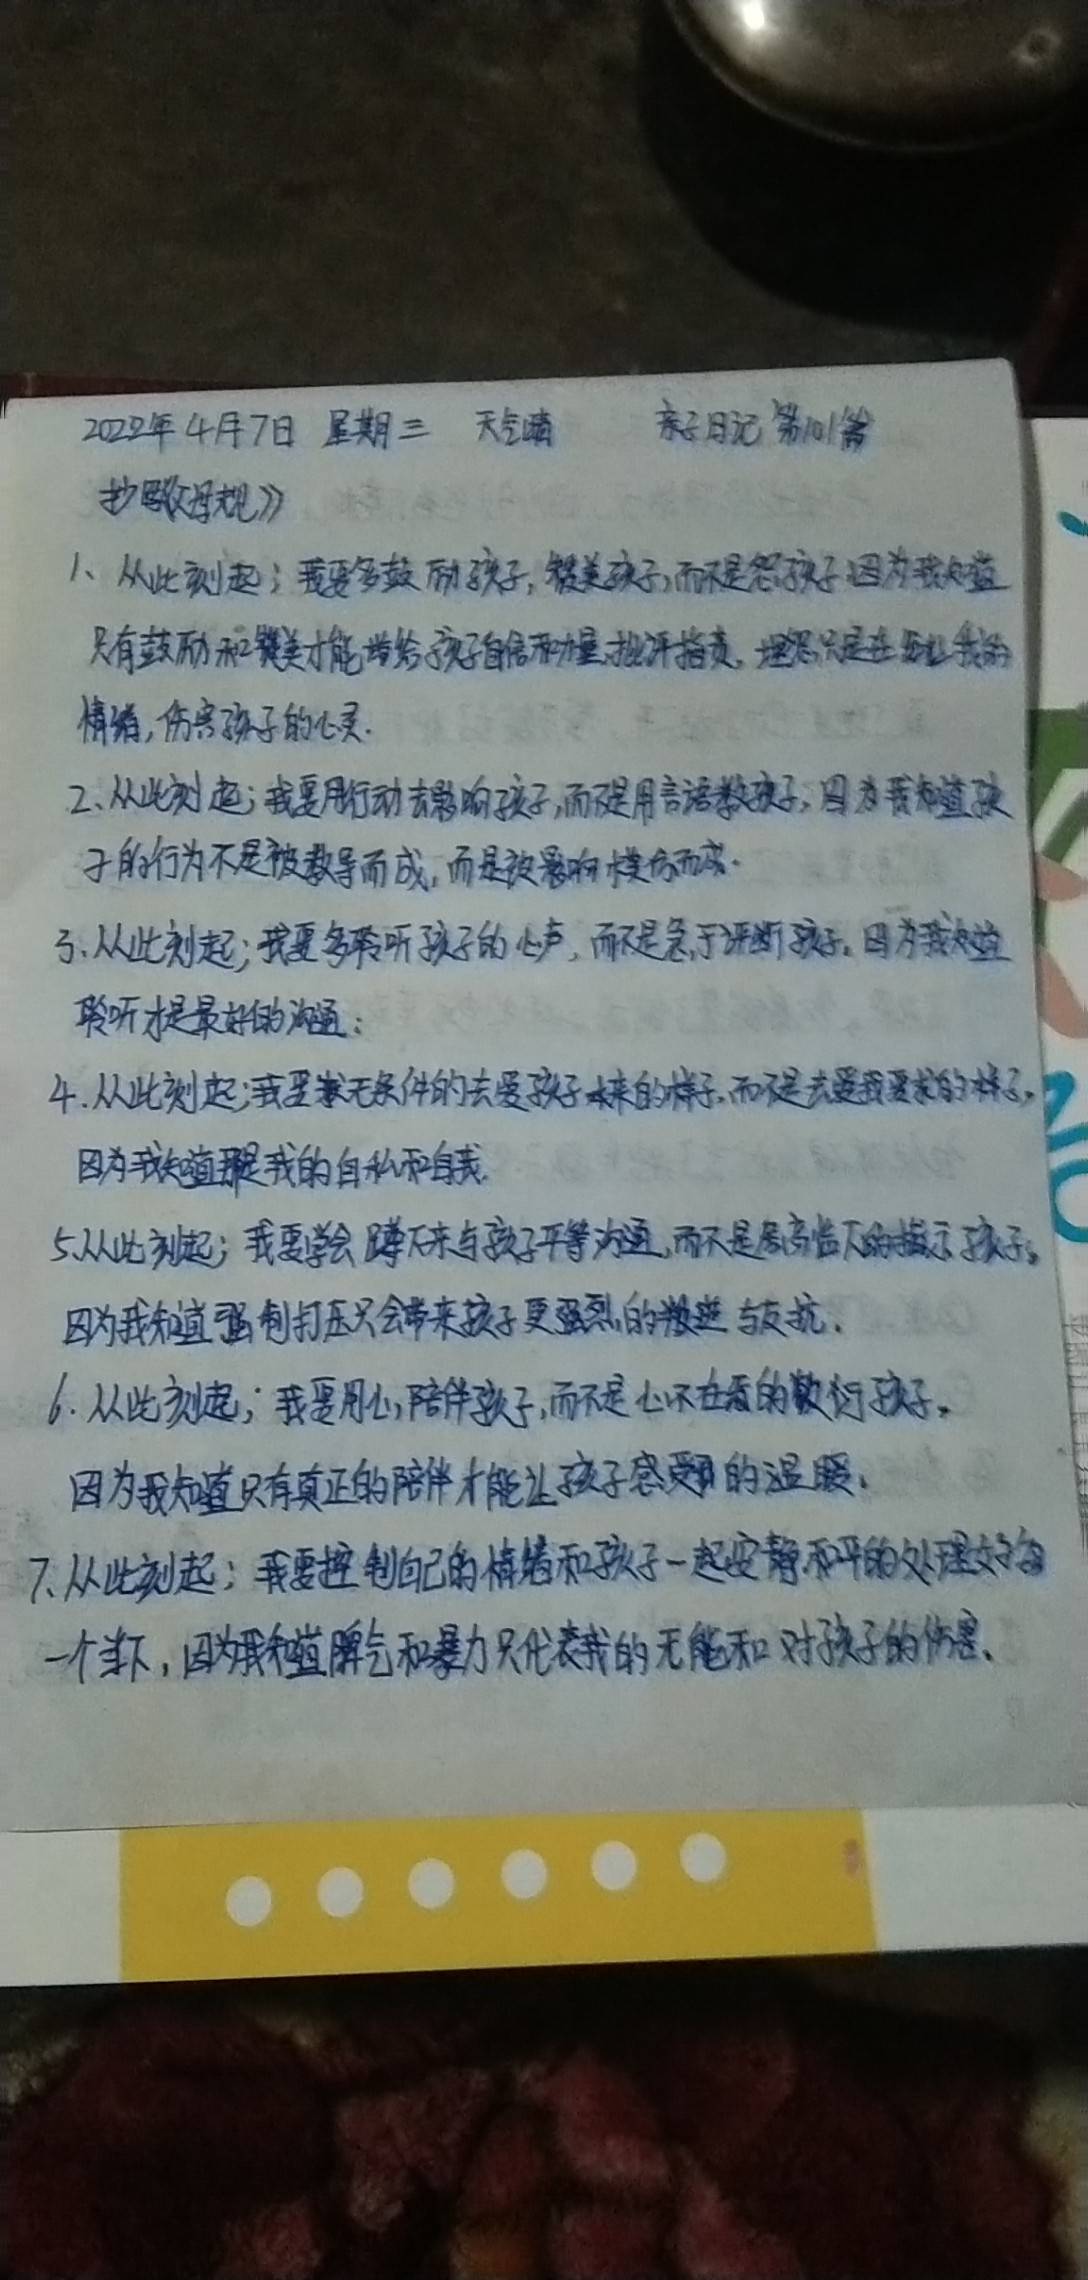 2022年4月7日 星期三 天气晴 亲子日记第101篇
抄写《父母规》
1、从此刻起；我要多鼓励孩子，赞美孩子，而不是 孩子因为我知道
只有鼓励和赞美才能带给孩子自信和力量，批评指责，埋怨只是在 我的
情绪，伤害孩子的心灵.
2、从此刻起；我要用行动去影响孩子，而不是用言语教孩子，因为我知道孩
子的行为不是被教导而成，而是被影响模仿而成.
3、从此刻起；我要多聆听孩子的心声，而不是急于评断孩子。因为我知道
聆听才是最好的沟通；
4.从此刻起；我要 无条件的去爱孩子本来的样子，而不是去爱我要求的样子。
因为我知道那是我的自私和自我.
5.从此刻起；我要学会蹲下来与孩子平等沟通，而不是居高临下的指示孩子。
因为我知道强制打压只会带来孩子更强烈的叛逆与反抗.
6.从此刻起；我要用心陪伴孩子，而不是心不在焉的敷衍孩子。
因为我知道只有真正的陪伴才能让孩子感受到的温暖.
7、从此刻起；我要控制自己的情绪和孩子一起安静和平的处理 每
一个当下，因为我知道脾气和暴力只代表我的无能和对孩子的伤害、